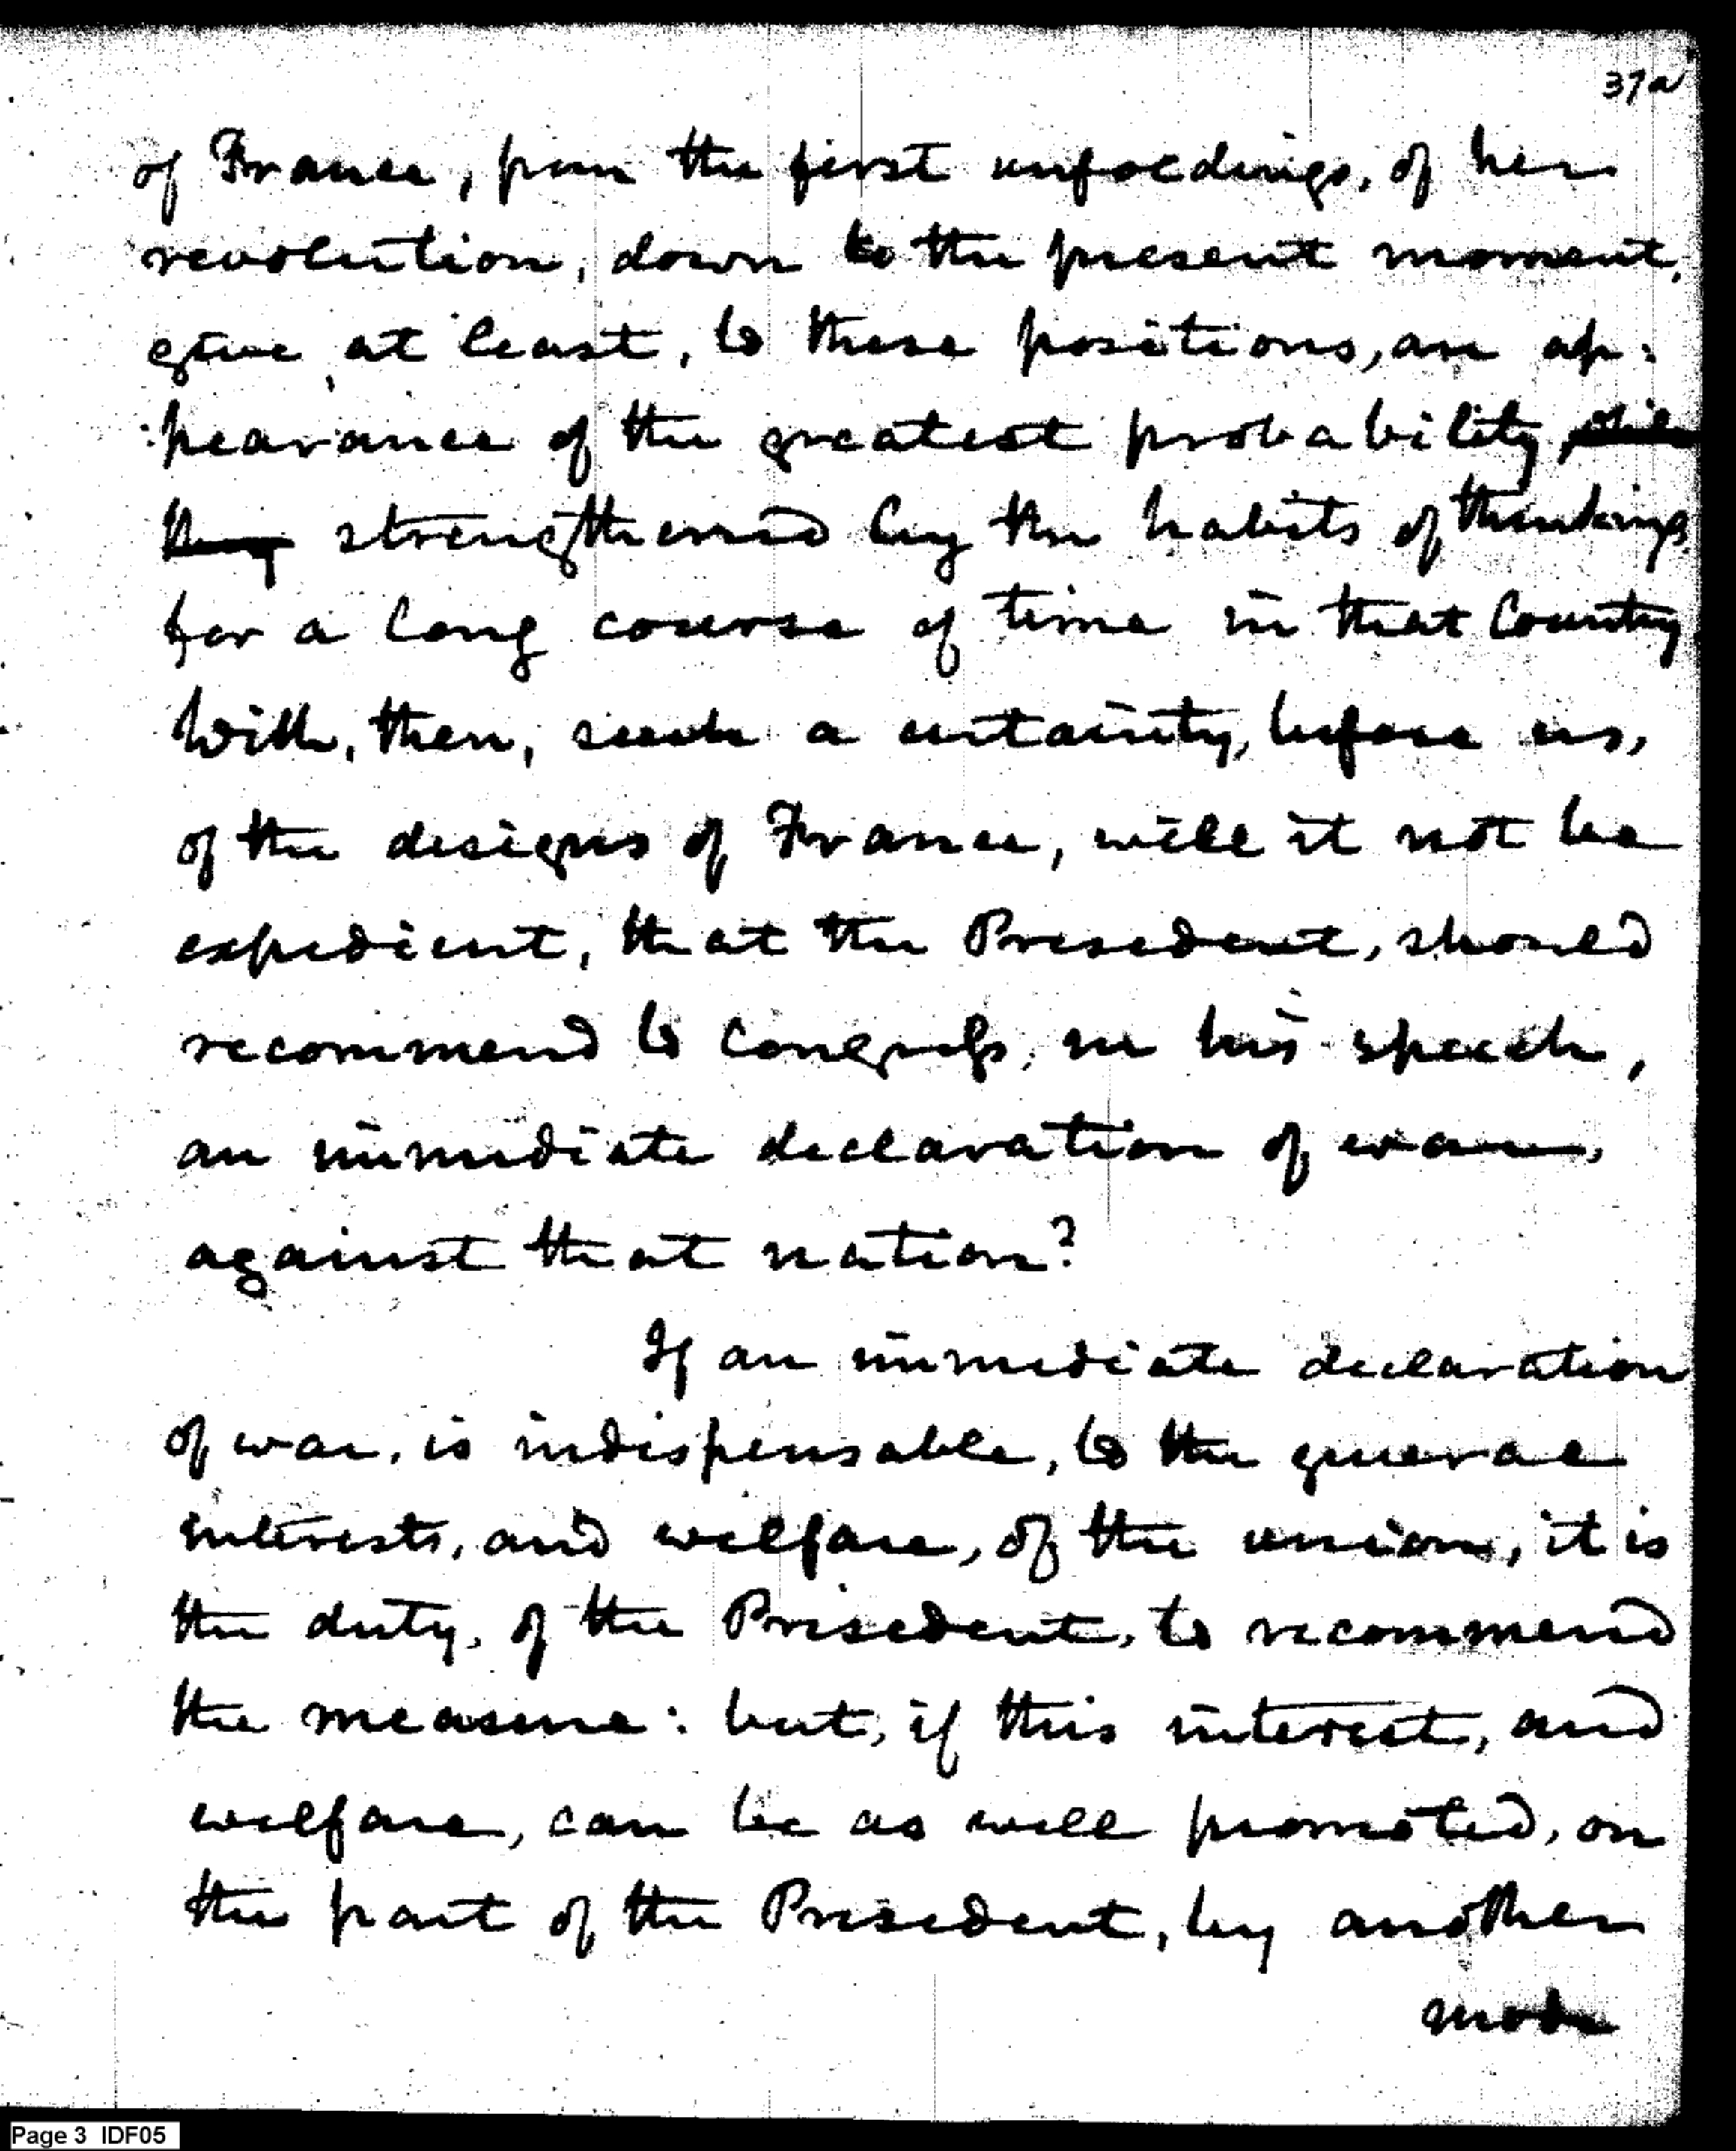 37a
of France, from the first unfoldings, of her
revolution, down to the present moment,
give at least, to these positions, an ap:
:pearance of the greatest probability,
strengthened by the habits of thinking
for a long course of time in that Country
With, then, such a certainty, before us,
of the designs of France, will it not be
expedient, that the President, should
recommend to Congress, in his speech,
an immediate declaration of war,
against that nation?
If an immediate declaration
of war, is indispensable, to the general
interests, and welfare, of the union, it is
the duty, of the President, to recommend
the measure: but, if this interest, and
welfare, can be as well promoted, on
the part of the President, by another
mode
Page 3 IDF05